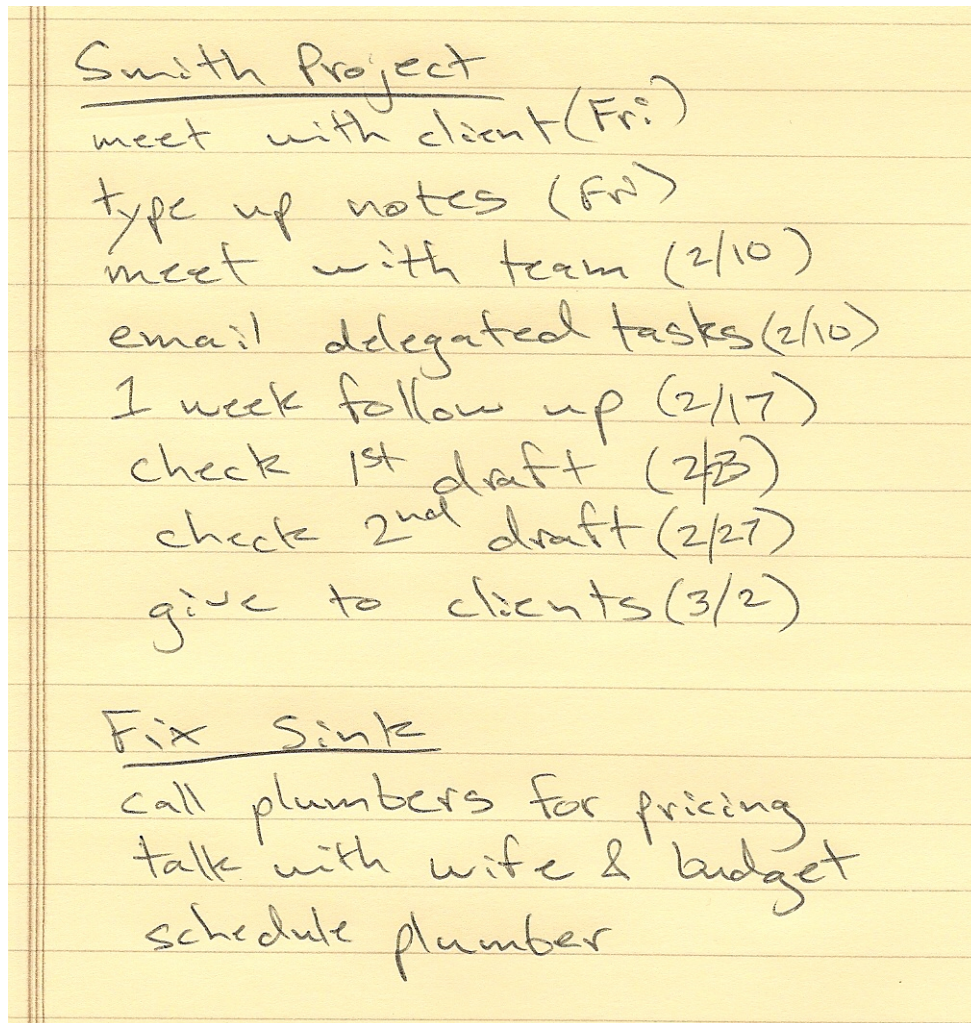 Smith Project
meet with client (Fri)
type up notes (Fri)
meet with team (2/10)
email delegated tasks (2/10)
1 week follow up (2/17)
check 1st draft (2/23)
check 2nd draft (2/27)
give to clients (3/2)
Fix Sink
call plumbers for pricing
talk with wife & budget
schedule plumber